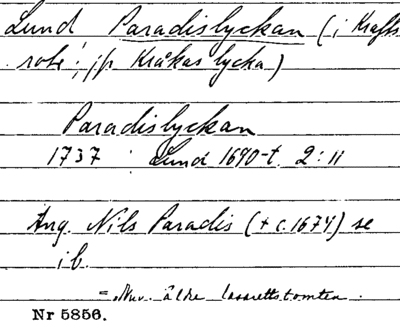 Lund Paradislyckan (i Krafts
rote; jfr Kråkas lycka)
Paradislyckan
1737 : Lund 1690-t. 2:11
Ang. Nils Paradis (+ c. 1674) se
ib.
= Nuv. äldre lasarettstomten.
Nr 5856.